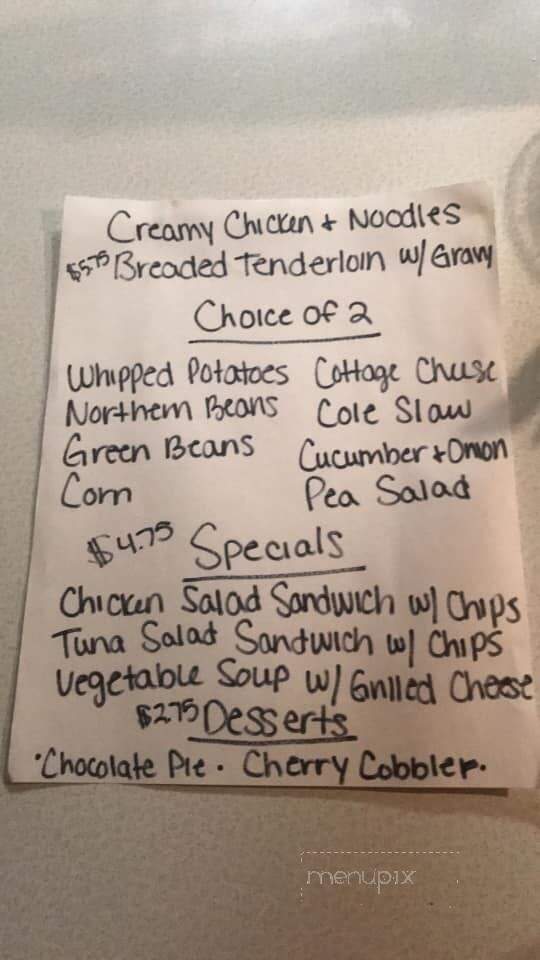 Creamy Chicken + Noodles
$5.75 Breaded Tenderloin w/ Gravy
Choice of 2
Whipped Potatoes Cottage Cheese
Northern Beans Cole Slaw
Green Beans Cucumber + Onion
Corn Pea Salad
$4.75 Specials
Chicken Salad Sandwich w/ Chips
Tuna Salad Sandwich w/ Chips
Vegetable Soup w/ Grilled Cheese
$2.75 Desserts
·Chocolate Pie · Cherry Cobbler·
menupix